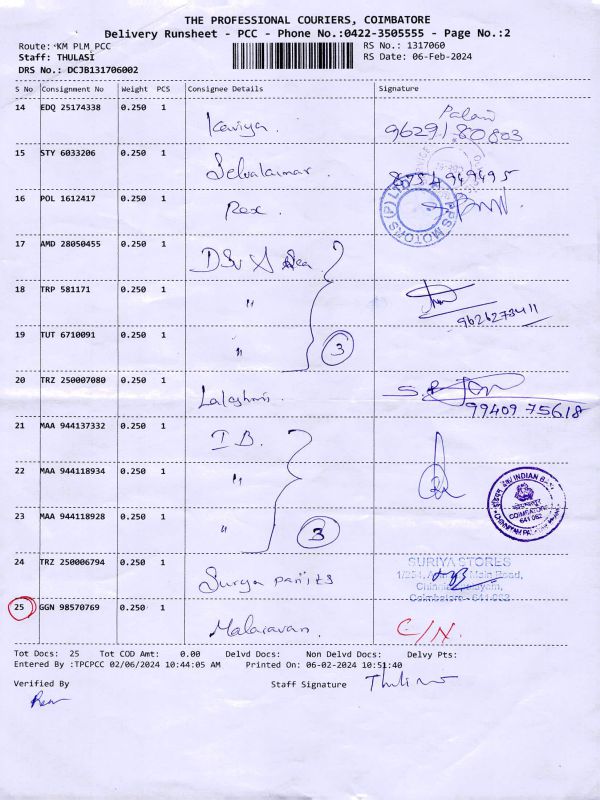 THE PROFESSIONAL COURIERS, COIMBATORE
Delivery Runsheet - PCC - Phone No.:0422-3505555 - Page No.:2
Route: KM PLM PCC
RS No.: 1317060
Staff: THULASI
RS Date: 06-Feb-2024
DRS No.: DCJB131706002
S No Consignment No Weight PCS Consignee Details Signature
14 EDQ 25174338 0.250 1 Kaviya. Palani
9629180803
15 STY 6033206 0.250 1 Selvakumar. 8754949495
16 POL 1612417 0.250 1 Rex.
MOTORS (P) LTD
17 AMD 28050455 0.250 1
18 TRP 581171 0.250 1 "
9626273411
19 TUT 6710091 0.250 1 " 3
20 TRZ 250007080 0.250 1
99409 75618
21 MAA 944137332 0.250 1 I B.
22 MAA 944118934 0.250 1 "
INDIAN BANK
COIMBATORE
641 062
23 MAA 944118928 0.250 1 " 3
24 TRZ 250006794 0.250 1 Surya paints
SURIYA STORES
Main Road,
Coimbatore - 641 062
25 GGN 98570769 0.250 1 Malaravan. C/N.
Tot Docs: 25 Tot COD Amt: 0.00 Delvd Docs: Non Delvd Docs: Delvy Pts:
Entered By :TPCPCC 02/06/2024 10:44:05 AM Printed On: 06-02-2024 10:51:40
Verified By Staff Signature